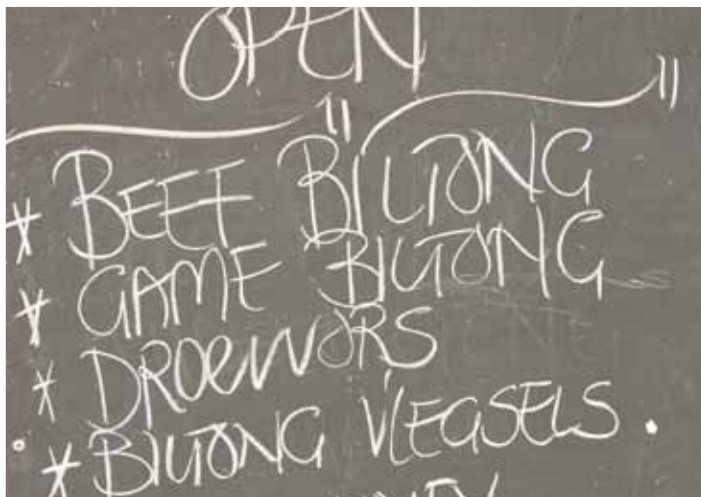 OPEN
* BEEF BILTONG
* GAME BILTONG
* DROEWORS
* BILTONG VLEGSELS.